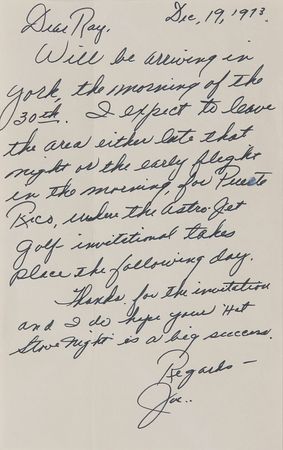 Dec, 19, 1973.
Dear Ray,
Will be arriving in
York, the morning of the
30th. I expect to leave
the area either late that
night or the early flight
in the morning, for Puerto
Rico, where the Astro-Jet
golf invitational takes
place the following day.
Thanks for the invitation
and I do hope your "Hot
Stove Night" is a big success.
Regards —
Joe..